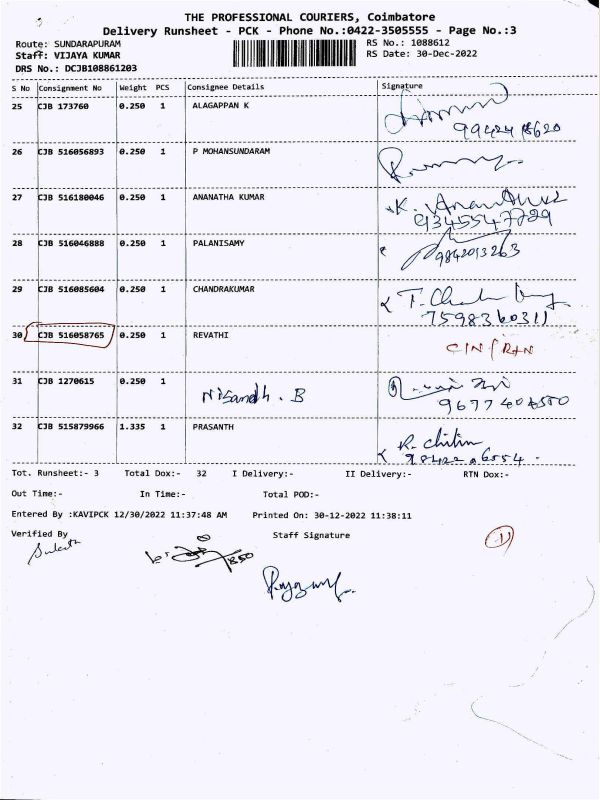 THE PROFESSIONAL COURIERS, Coimbatore
Delivery Runsheet - PCK - Phone No.:0422-3505555 - Page No.:3
Route: SUNDARAPURAM RS No.: 1088612
Staff: VIJAYA KUMAR RS Date: 30-Dec-2022
DRS No.: DCJB108861203
S No Consignment No Weight PCS Consignee Details Signature
25 CJB 173760 0.250 1 ALAGAPPAN K
26 CJB 516056893 0.250 1 P MOHANSUNDARAM
27 CJB 516180046 0.250 1 ANANATHA KUMAR K. Ananth
9345547729
28 CJB 516046888 0.250 1 PALANISAMY
9842013263
29 CJB 516085604 0.250 1 CHANDRAKUMAR
7598360311
30 CJB 516058765 0.250 1 REVATHI CIN/RTN
31 CJB 1270615 0.250 1 Nisandh . B
9677404550
32 CJB 515879966 1.335 1 PRASANTH R. Chitin
Tot. Runsheet:- 3 Total Dox:- 32 I Delivery:- II Delivery:- RTN Dox:-
Out Time:- In Time:- Total POD:-
Entered By :KAVIPCK 12/30/2022 11:37:48 AM Printed On: 30-12-2022 11:38:11
Verified By Staff Signature